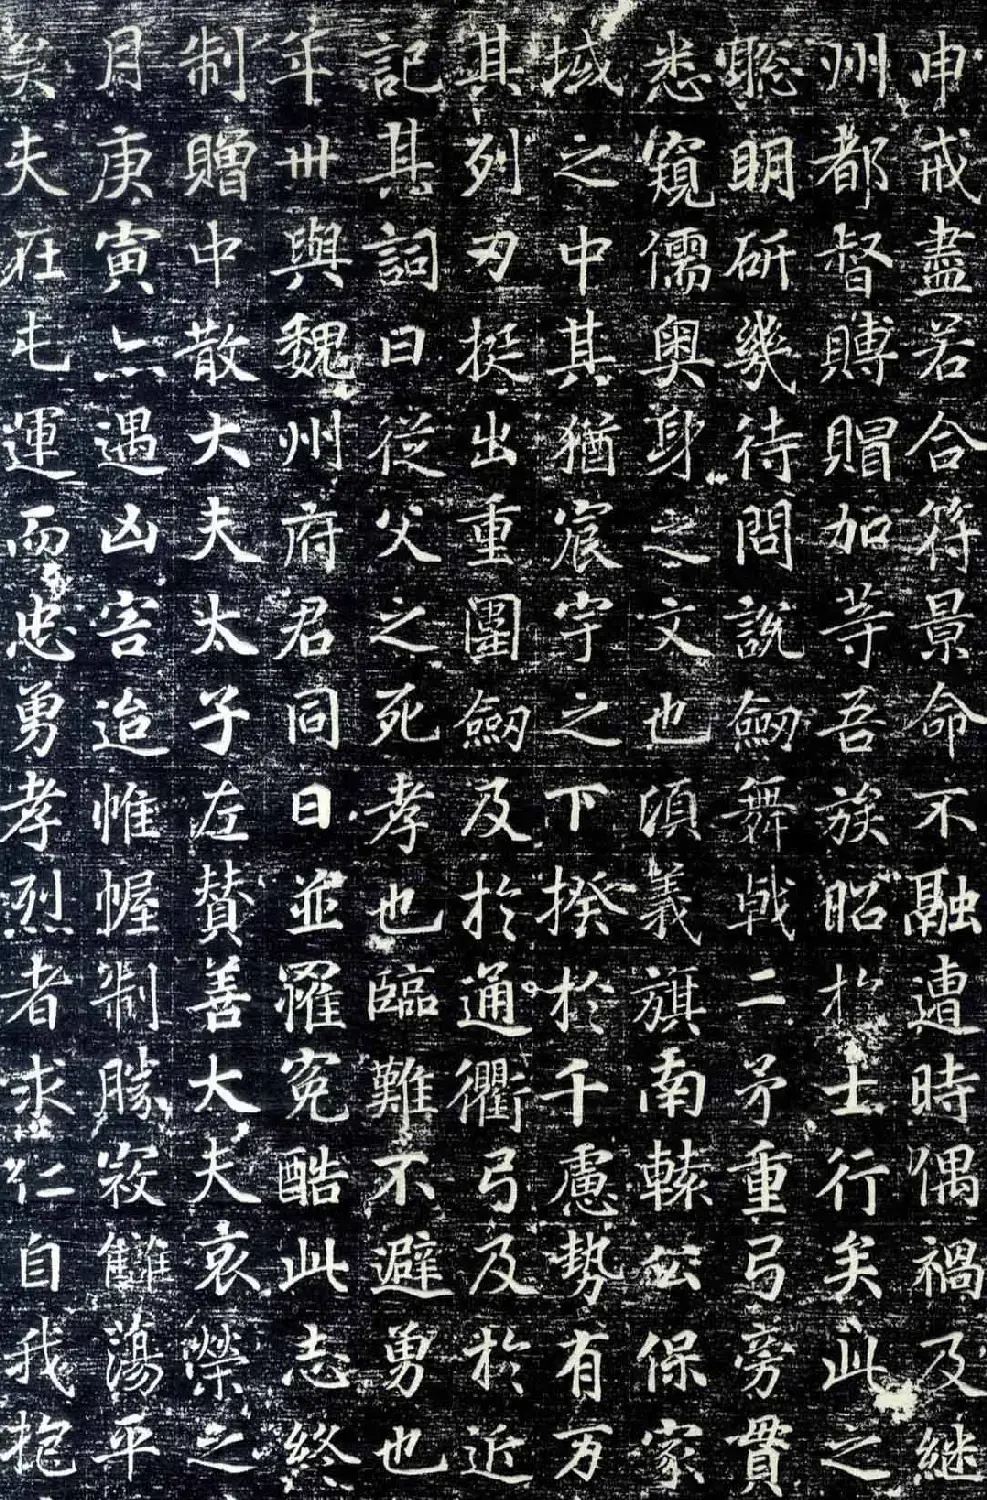 申戒盡若合符景命不融遭時偶禍及継
州都督賻賵加等吾族昭於士行矣此之
聡明研幾待問說劒舞戟二矛重弓旁貫
悉窺儒奥身之文也須義旗南轅公保家
域之中其猶宸宇之下揆於千慮勢有万
其列刃挺出重圍劒及於通衢弓及於近
記其詞曰従父之死孝也臨難不避勇也
年卌與魏州府君同日並罹冤酷此志終
制贈中散大夫太子左賛善大夫哀榮之
月庚寅亦遇凶害追帷幄制勝寇讎蕩平
矣夫在屯運而忠勇孝烈者求仁自我抱